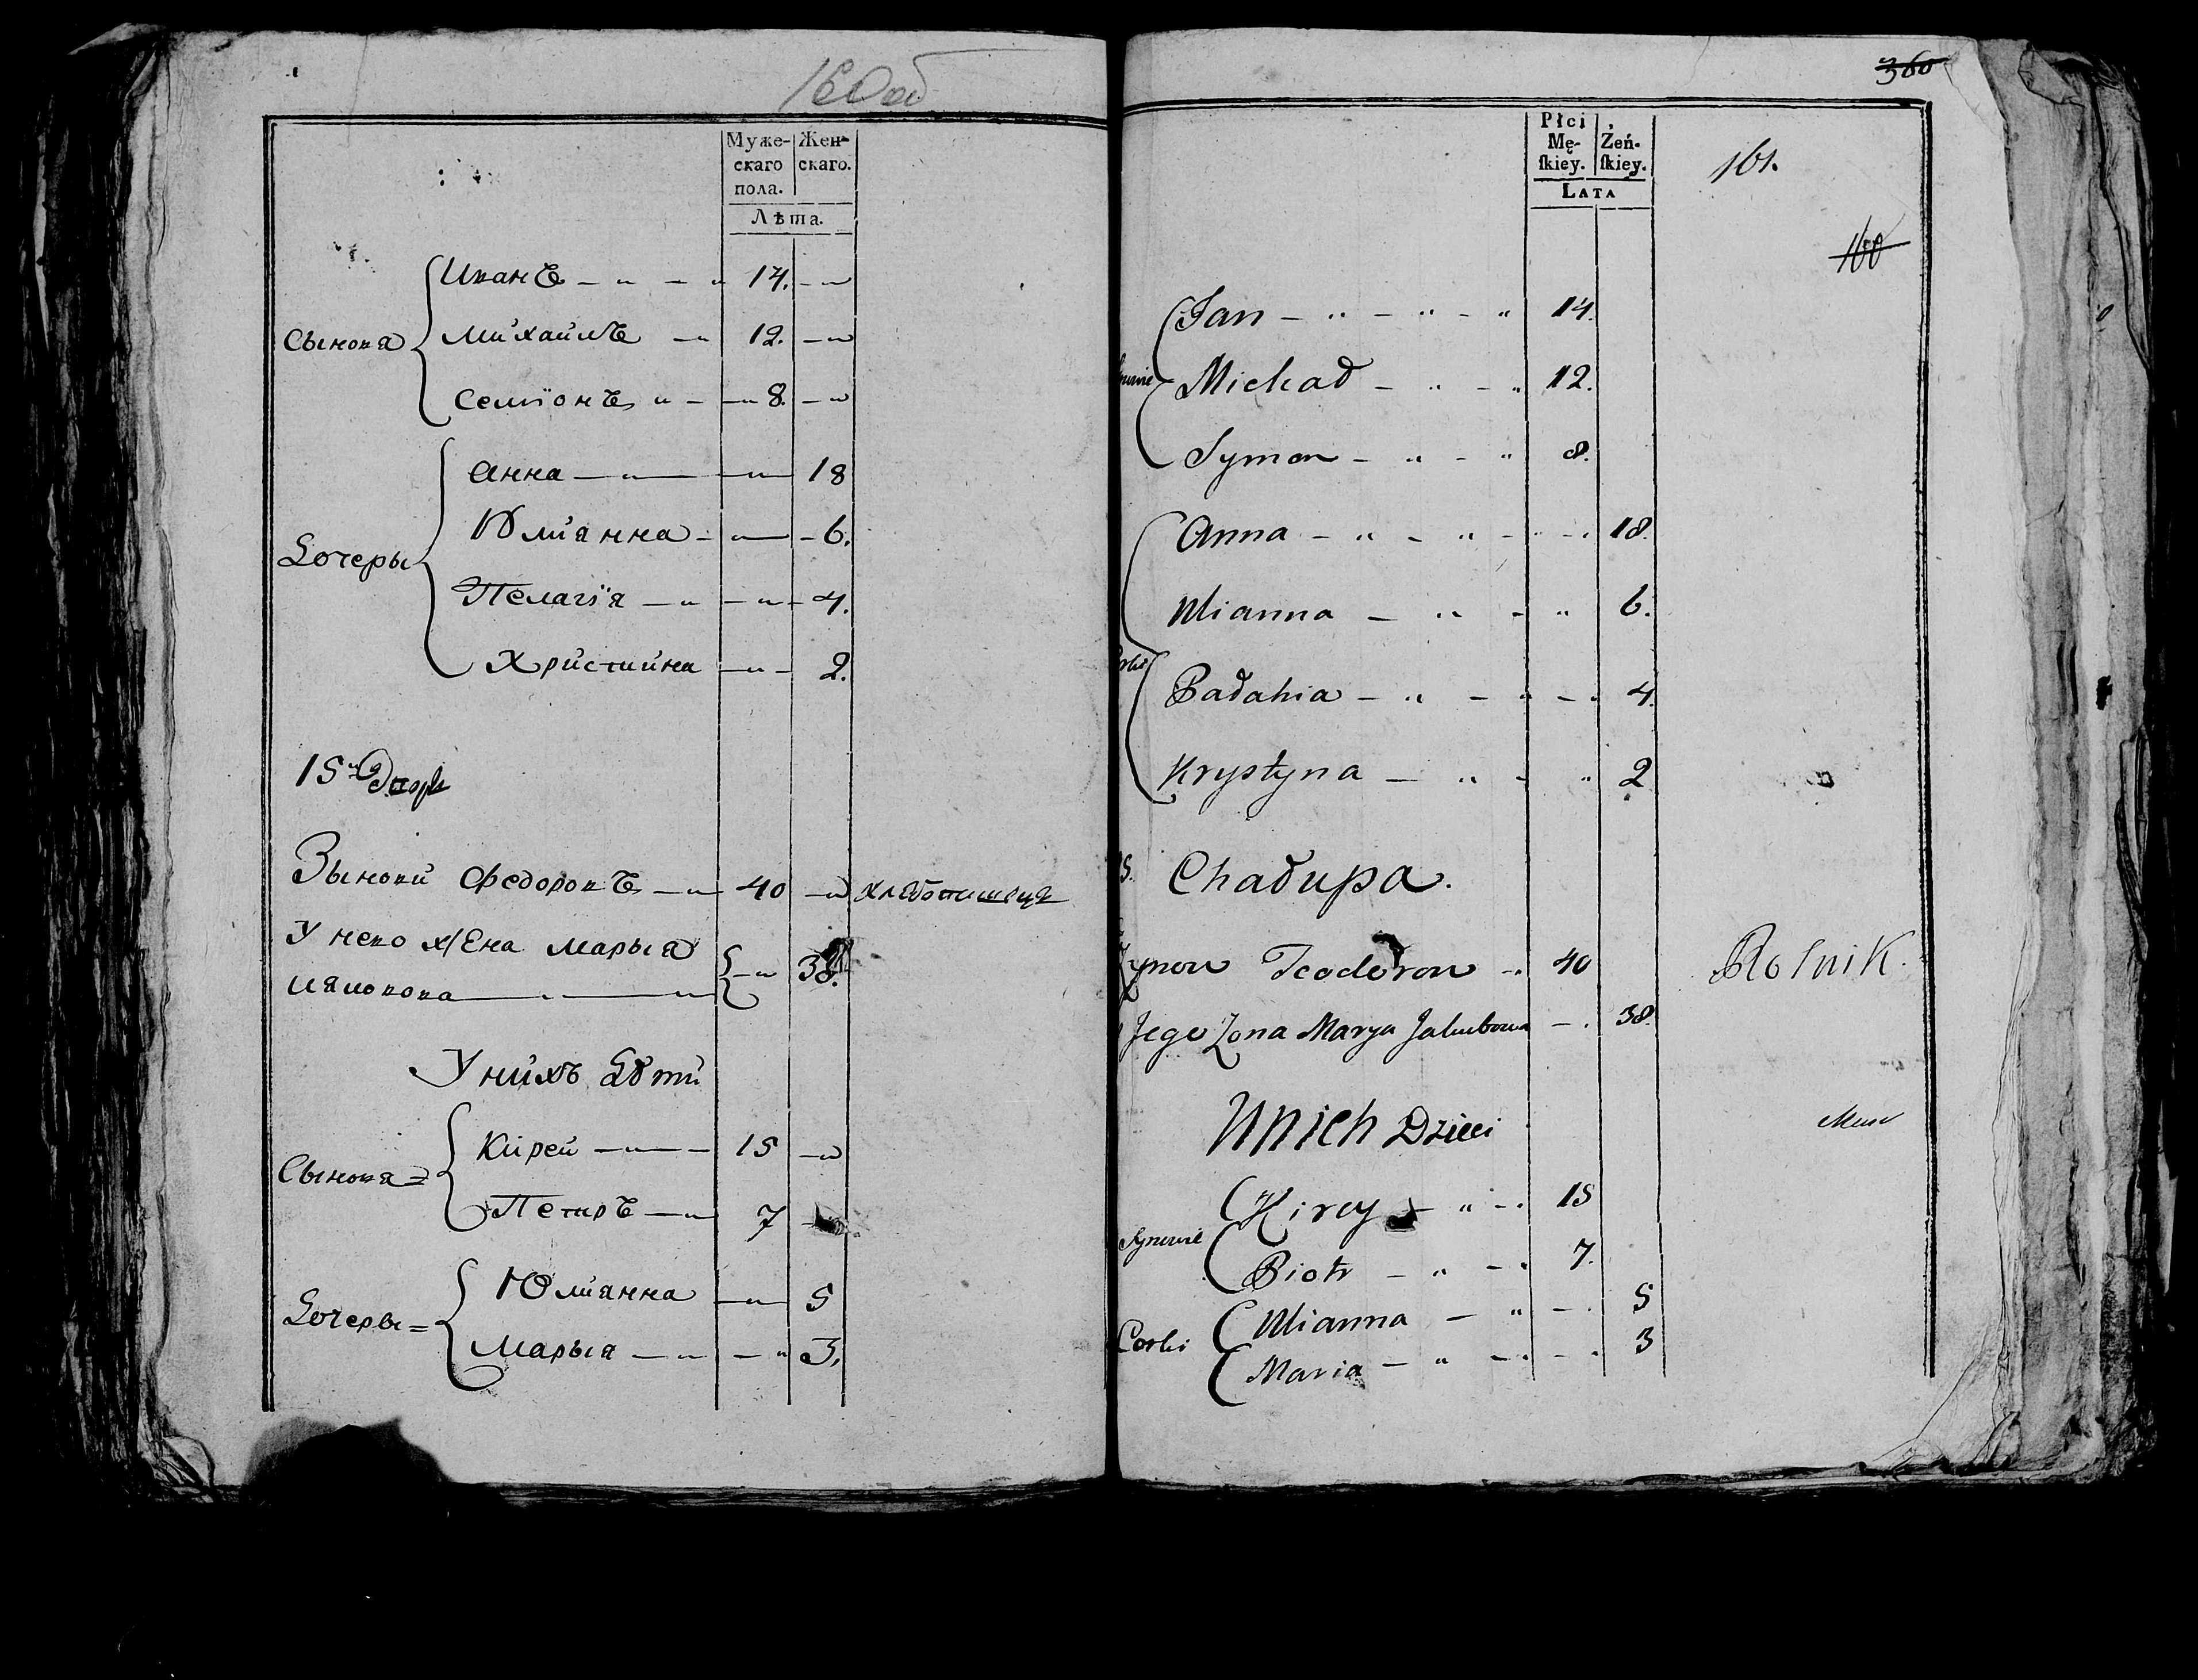 160об
Муже-
скаго
пола.
Жен-
скаго.
Лѣта.
Сынова
Иванъ — " — " 14. — "
Михаилъ — " 12. — "
Семіонъ " — — " 8. — "
Дочеры
Анна — " — — " — 18
Юлианна — — " — — 6.
Пелагія — " — " — 4.
Христина — " — 2.
15й Дворъ
Зыновй Федоровъ — " 40 — " хлѣбопашецъ
У него жена Марыя
Иаковова — " — " — " 38.
У нихъ дѣти
Сынова =
Кірей — " — 15 — "
Петръ — " 7
Дочеры =
Юлианна — " — 5
Марыя — " — " 3.
360
Płci
Mę-
ſkiey.
Żeń-
ſkiey.
LATA
161.
160
Jan — " — " — " 14.
Michał — " — " 12.
Symon — " — " 8.
Anna — " — " — " — " 18.
Ulianna — " — " 6.
Pałahia — " — " — " 4.
Krystyna — " — " 2
15. Chałupa.
Zynow Teodorow — " 40 Rolnik.
Jego Zona Marya Jakubowa — . 38.
U nich Dzieci
Synowie
Kirey — " — . 15
Piotr — " — . 7.
Corki
Ulianna — " — . 5
Maria — " — . — . 3